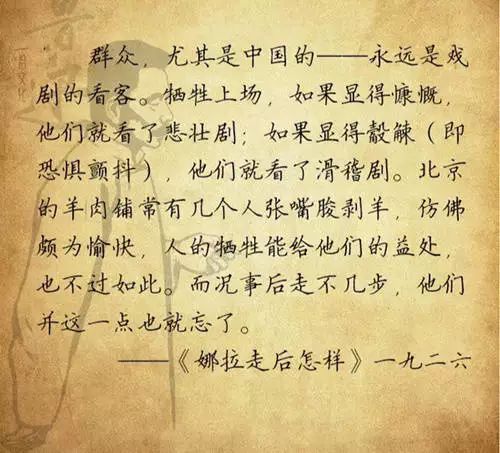 群众，尤其是中国的——永远是戏
剧的看客。牺牲上场，如果显得慷慨，
他们就看了悲壮剧；如果显得觳觫（即
恐惧颤抖），他们就看了滑稽剧。北京
的羊肉铺常有几个人张嘴脧剥羊，仿佛
颇为愉快，人的牺牲能给他们的益处，
也不过如此。而况事后走不几步，他们
并这一点也就忘了。
——《娜拉走后怎样》一九二六